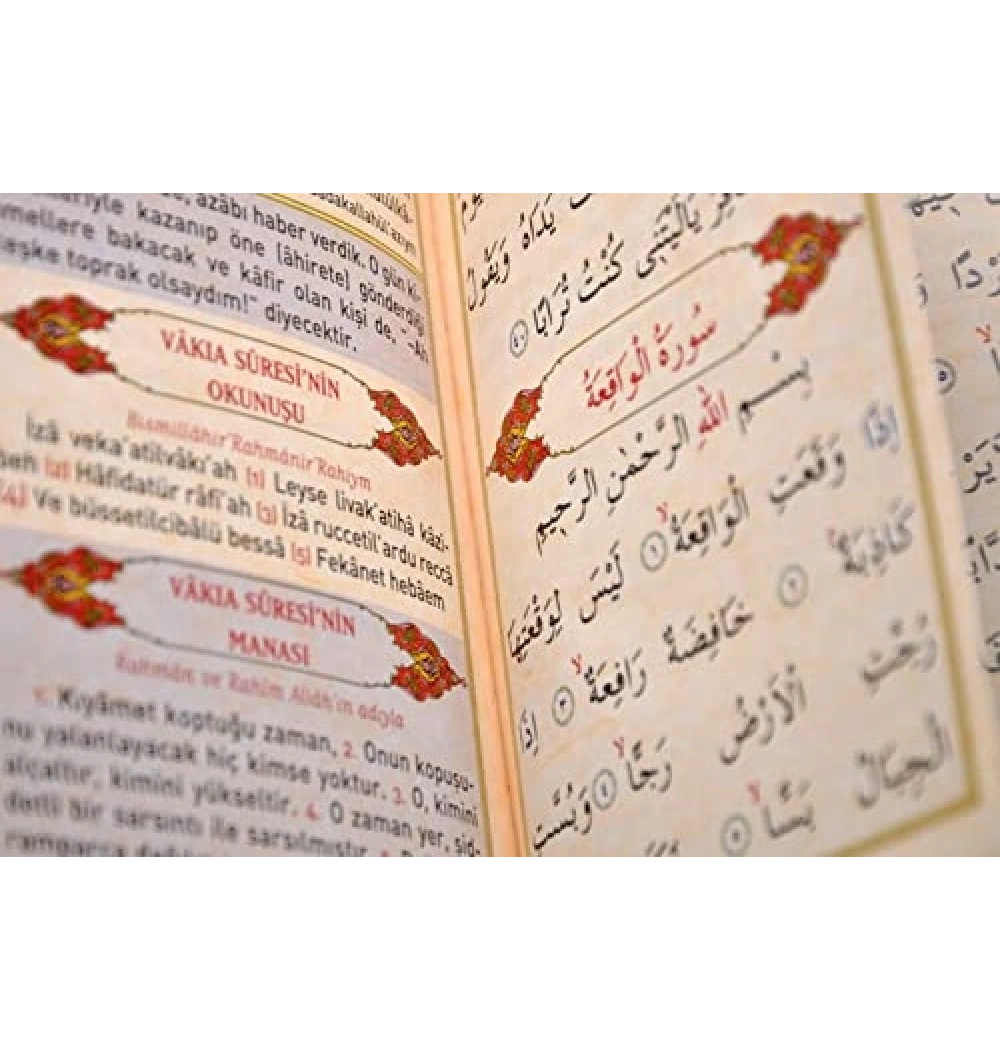 azâbı haber verdik. O gün ki-
kazanıp öne (âhirete) gönderdiği
bakacak ve kâfir olan kişi de, "-Ah
keşke toprak olsaydım!" diyecektir.
VÂKIA SÛRESİ'NİN
OKUNUŞU
Bismillâhir'Rahmânir'Rahiym
İzâ veka'atilvâkı'ah (1) Leyse livak'atihâ kâzi-
beh (2) Hâfidatür râfi'ah (3) İzâ ruccetil'ardu reccâ
(4) Ve büssetilcibâlü bessâ (5) Fekânet hebâem
VÂKIA SÛRESİ'NİN
MANASI
Rahmân ve Rahîm Allâh'ın adıyla
1. Kıyâmet koptuğu zaman, 2. Onun kopuşu-
nu yalanlayacak hiç kimse yoktur. 3. O, kimini
alçaltır, kimini yükseltir. 4. O zaman yer, şid-
detli bir sarsıntı ile sarsılmıştır.
يَدَاهُ وَيَقُولُ
يَالَيْتَنِي كُنْتُ تُرَابًا ﴿٤٠﴾
سُورَةُ الْوَاقِعَةُ
بِسْمِ اللهِ الرَّحْمٰنِ الرَّحِيمِ
إِذَا وَقَعَتِ الْوَاقِعَةُ ﴿١﴾ لَيْسَ لِوَقْعَتِهَا
كَاذِبَةٌ ﴿٢﴾ خَافِضَةٌ رَافِعَةٌ ﴿٣﴾ إِذَا
رُجَّتِ الْأَرْضُ رَجًّا ﴿٤﴾ وَبُسَّتِ
الْجِبَالُ بَسًّا ﴿٥﴾